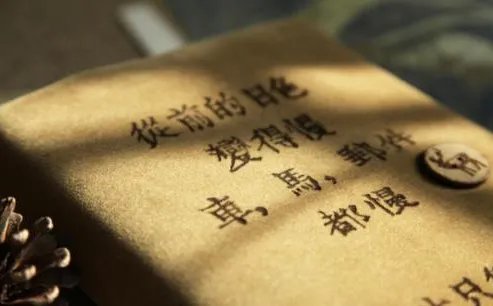 從前的日色
變得慢
車，馬，郵件
都慢
只